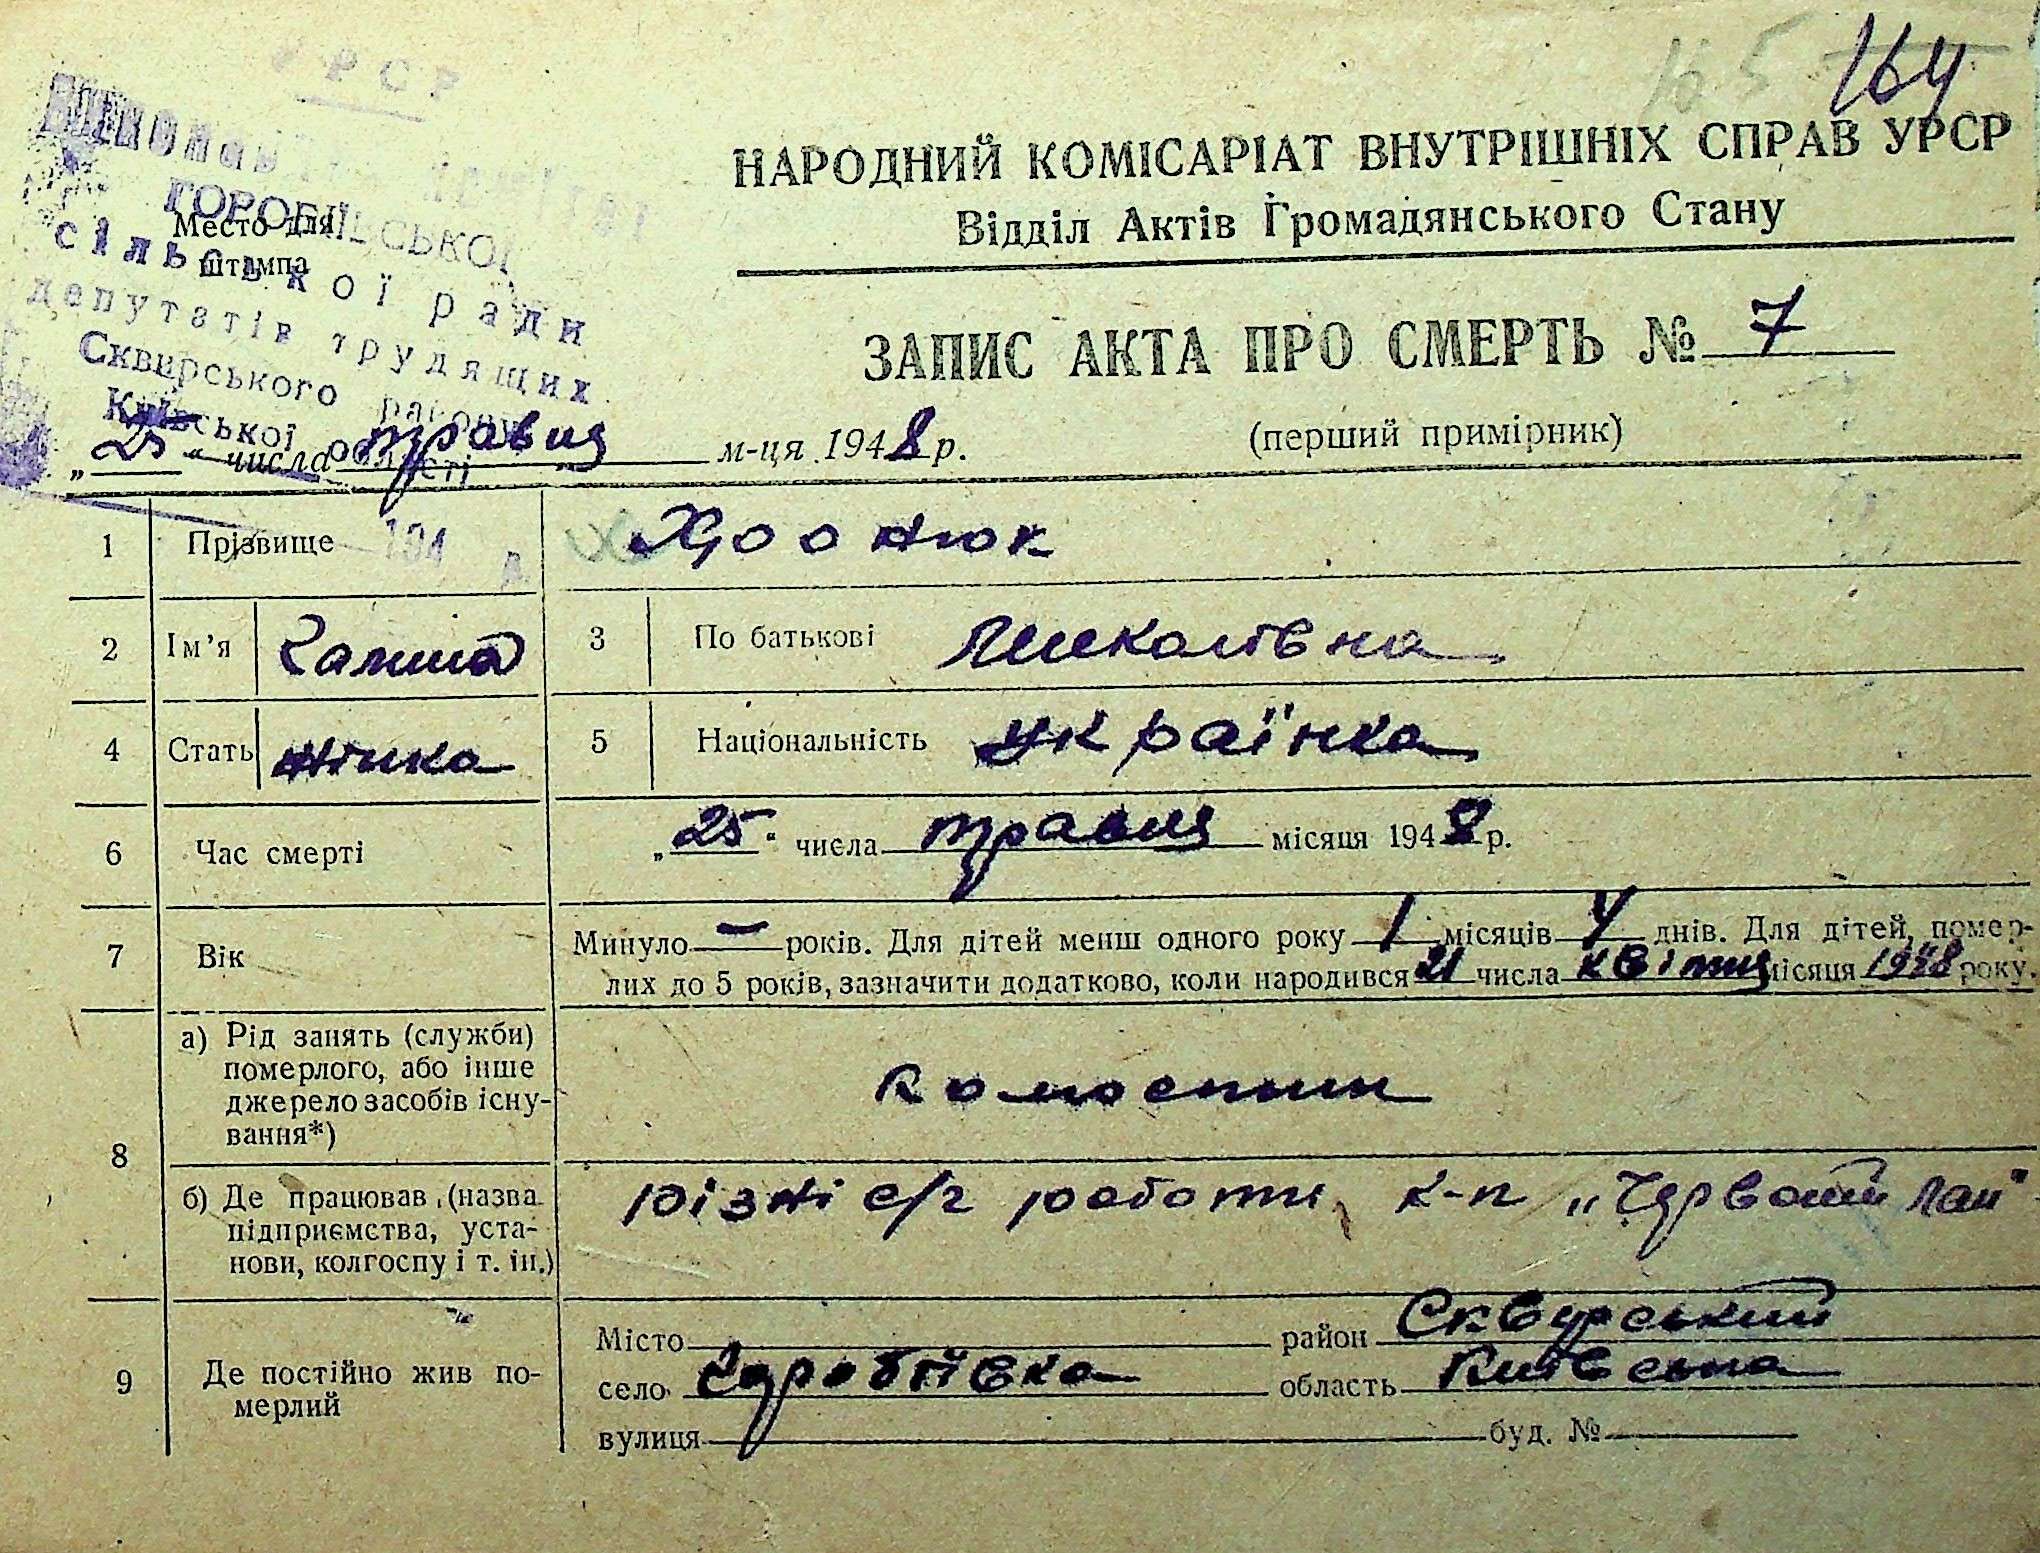 УРСР
165 164
Виконавчий комітет
ГОРОБІЇВСЬКОЇ
сільської ради
депутатів трудящих
Сквирського району
Київської області
194 р.
Место для
штампа
НАРОДНИЙ КОМІСАРІАТ ВНУТРІШНІХ СПРАВ УРСР
Відділ Актів Громадянського Стану
ЗАПИС АКТА ПРО СМЕРТЬ № 7
(перший примірник)
„25“ числа травня м-ця 1948 р.
1 Прізвище
2 Ім’я Галина 3 По батькові Миколаївна
4 Стать жінка 5 Національність українка
6 Час смерті „25“ числа травня місяця 1948 р.
7 Вік Минуло — років. Для дітей менш одного року 1 місяців 4 днів. Для дітей, помер-
лих до 5 років, зазначити додатково, коли народився 21 числа квітня місяця 1948 року.
8 а) Рід занять (служби)
померлого, або інше
джерело засобів існу-
вання*)
б) Де працював (назва
підприємства, уста-
нови, колгоспу і т. ін.)
різні с/г роботи, к-п „Червоний лан"
9 Де постійно жив по-
мерлий
Місто район Сквирський
село Горобіївка область Київська
вулиця буд. №